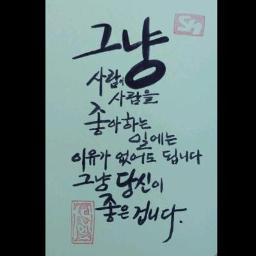 그냥
사람이
사람을
좋아하는
일에는
이유가 없어도 됩니다
그냥 당신이
좋은 겁니다.